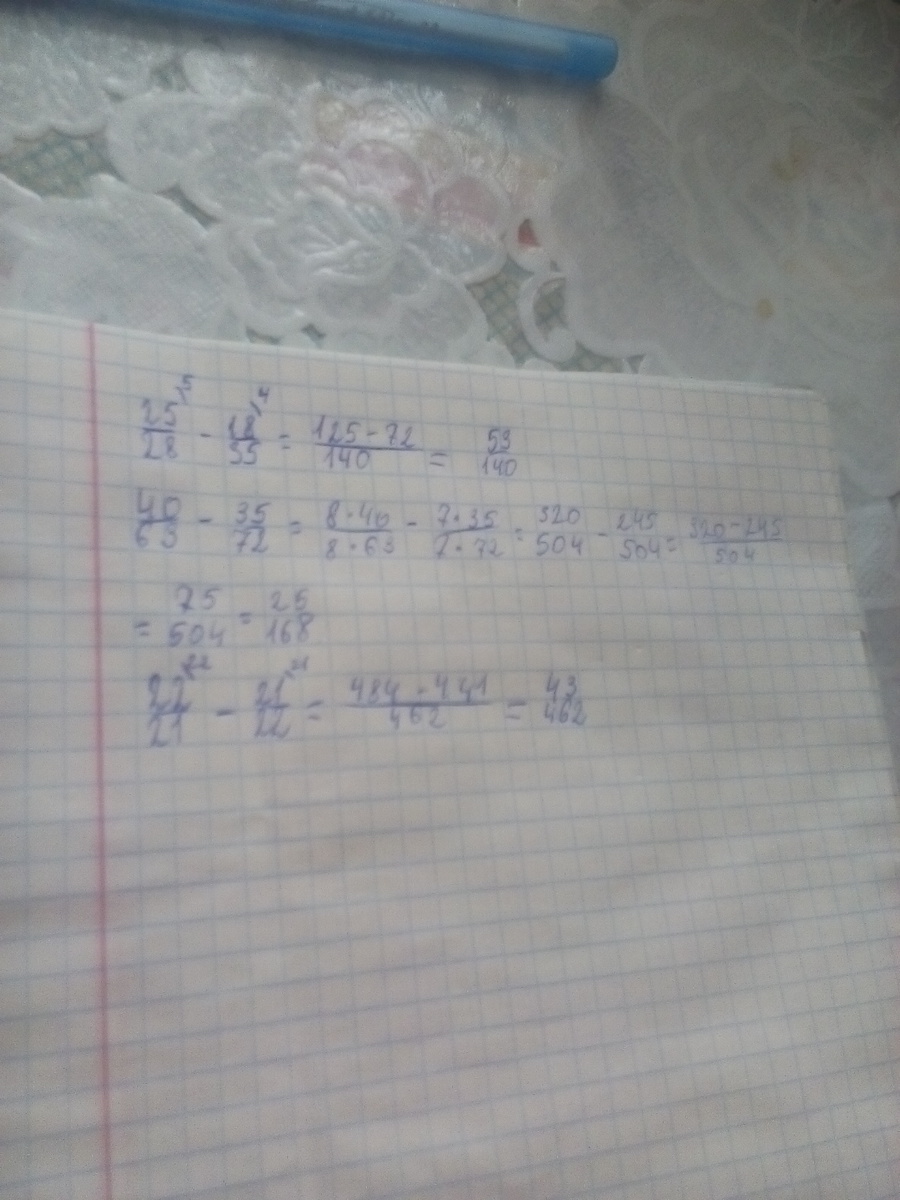 25/28 ⁵ - 18/35 ⁴ = 125-72/140 = 53/140
40/63 - 35/72 = 8·40/8·63 - 7·35/7·72 = 320/504 - 245/504 = 320-245/504
= 75/504 = 25/168
22/21 ²² - 21/22 ²¹ = 484-441/462 = 43/462